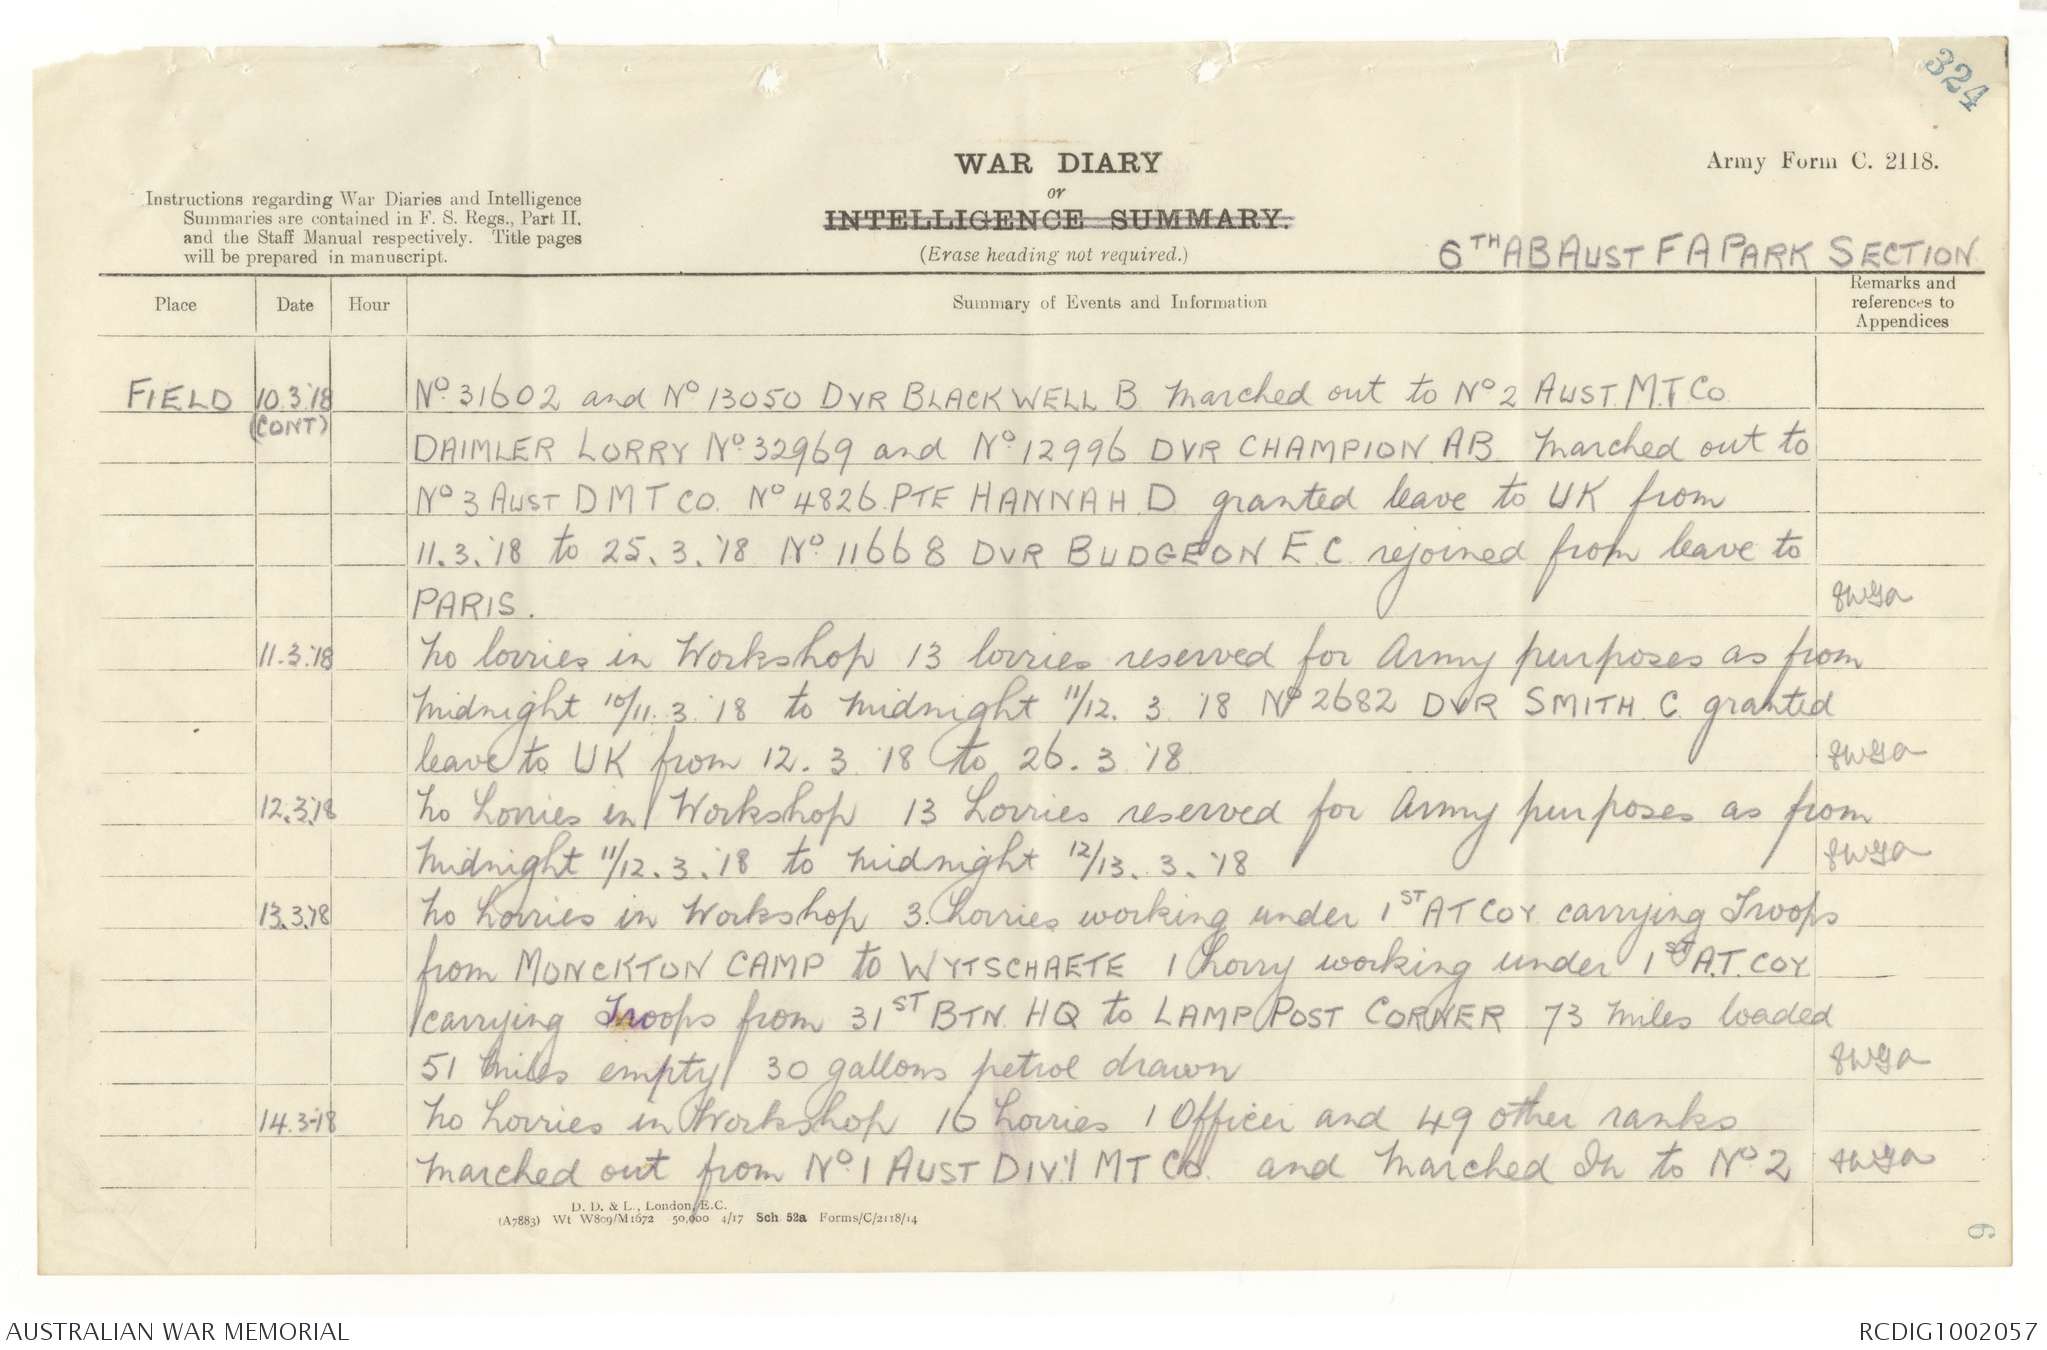 324
WAR DIARY
or
INTELLIGENCE SUMMARY.
(Erase heading not required.)
Army Form C. 2118.
Instructions regarding War Diaries and Intelligence
Summaries are contained in F. S. Regs., Part II.
and the Staff Manual respectively. Title pages
will be prepared in manuscript.
6TH AB AUST F A PARK SECTION
Place Date Hour Summary of Events and Information Remarks and references to Appendices
FIELD 10.3.'18 No. 31602 and No 13050 DVR BLACKWELL B. Marched out to No 2 AUST. M.T. Co
(CONT) DAIMLER LORRY No. 32969 and No. 12996 DVR CHAMPION AB. Marched out to
No 3 AUST D M T CO. No 4826 PTE HANNAH D granted leave to UK from
11.3.'18 to 25.3.'18 No. 11668 DVR BUDGEON E.C. rejoined from leave to
PARIS.
11.3.'18 No lorries in Workshop 13 lorries reserved for Army purposes as from
Midnight 10/11.3.'18 to Midnight 11/12.3.'18 No 2682 DVR SMITH C. granted
leave to UK from 12.3.'18 to 26.3.'18
12.3.'18 No Lorries in Workshop 13 Lorries reserved for Army purposes as from
Midnight 11/12.3.'18 to Midnight 12/13.3.'18
13.3.'18 No Lorries in Workshop 3. Lorries working under 1ST AT COY. carrying Troops
from MONCKTON CAMP to WYTSCHAETE 1 Lorry working under 1ST A.T. COY
carrying Troops from 31ST BTN. HQ to LAMP POST CORNER 73 Miles loaded
51 Miles empty 30 gallons petrol drawn
14.3.'18 No Lorries in Workshop 16 Lorries 1 Officer and 49 other ranks
Marched out from No. 1 AUST DIV'L MT CO. and Marched In to No 2
D. D. & L., London, E.C.
(A7883) Wt W809/M1672 50,000 4/17 Sch 52a Forms/C/2118/14
6
AUSTRALIAN WAR MEMORIAL
RCDIG1002057